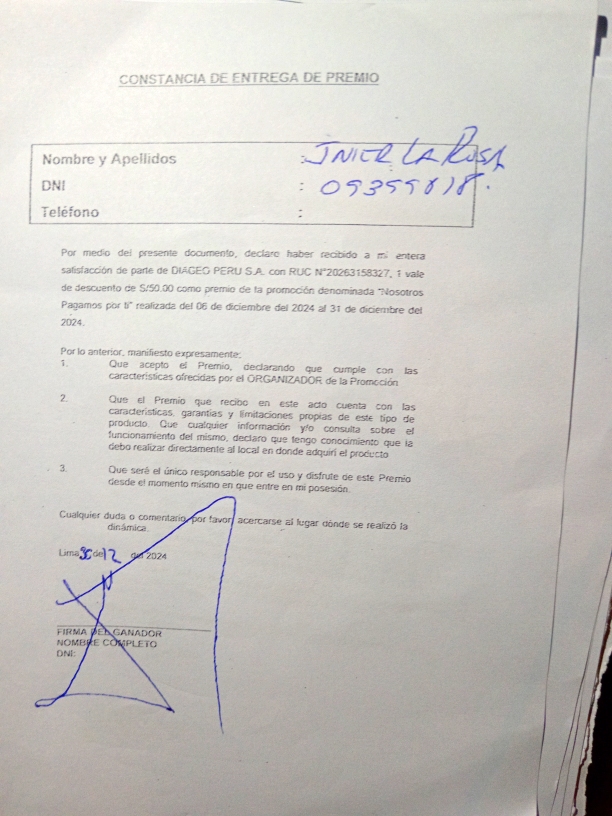 CONSTANCIA DE ENTREGA DE PREMIO
Nombre y Apellidos : JNIER LA ROSA
DNI :
Teléfono :
Por medio del presente documento, declaro haber recibido a mi entera
satisfacción de parte de DIAGEO PERU S.A. con RUC N°20263158327, 1 vale
de descuento de S/50.00 como premio de la promoción denominada "Nosotros
Pagamos por ti" realizada del 06 de diciembre del 2024 al 31 de diciembre del
2024.
Por lo anterior, manifiesto expresamente:
1. Que acepto el Premio, declarando que cumple con las
características ofrecidas por el ORGANIZADOR de la Promoción
2. Que el Premio que recibo en este acto cuenta con las
características, garantías y limitaciones propias de este tipo de
producto. Que cualquier información y/o consulta sobre el
funcionamiento del mismo, declaro que tengo conocimiento que la
debo realizar directamente al local en donde adquirí el producto
3. Que seré el único responsable por el uso y disfrute de este Premio
desde el momento mismo en que entre en mi posesión.
Cualquier duda o comentario, por favor, acercarse al lugar dónde se realizó la
dinámica.
Lima, de 12 del 2024
FIRMA DEL GANADOR
NOMBRE COMPLETO
DNI: